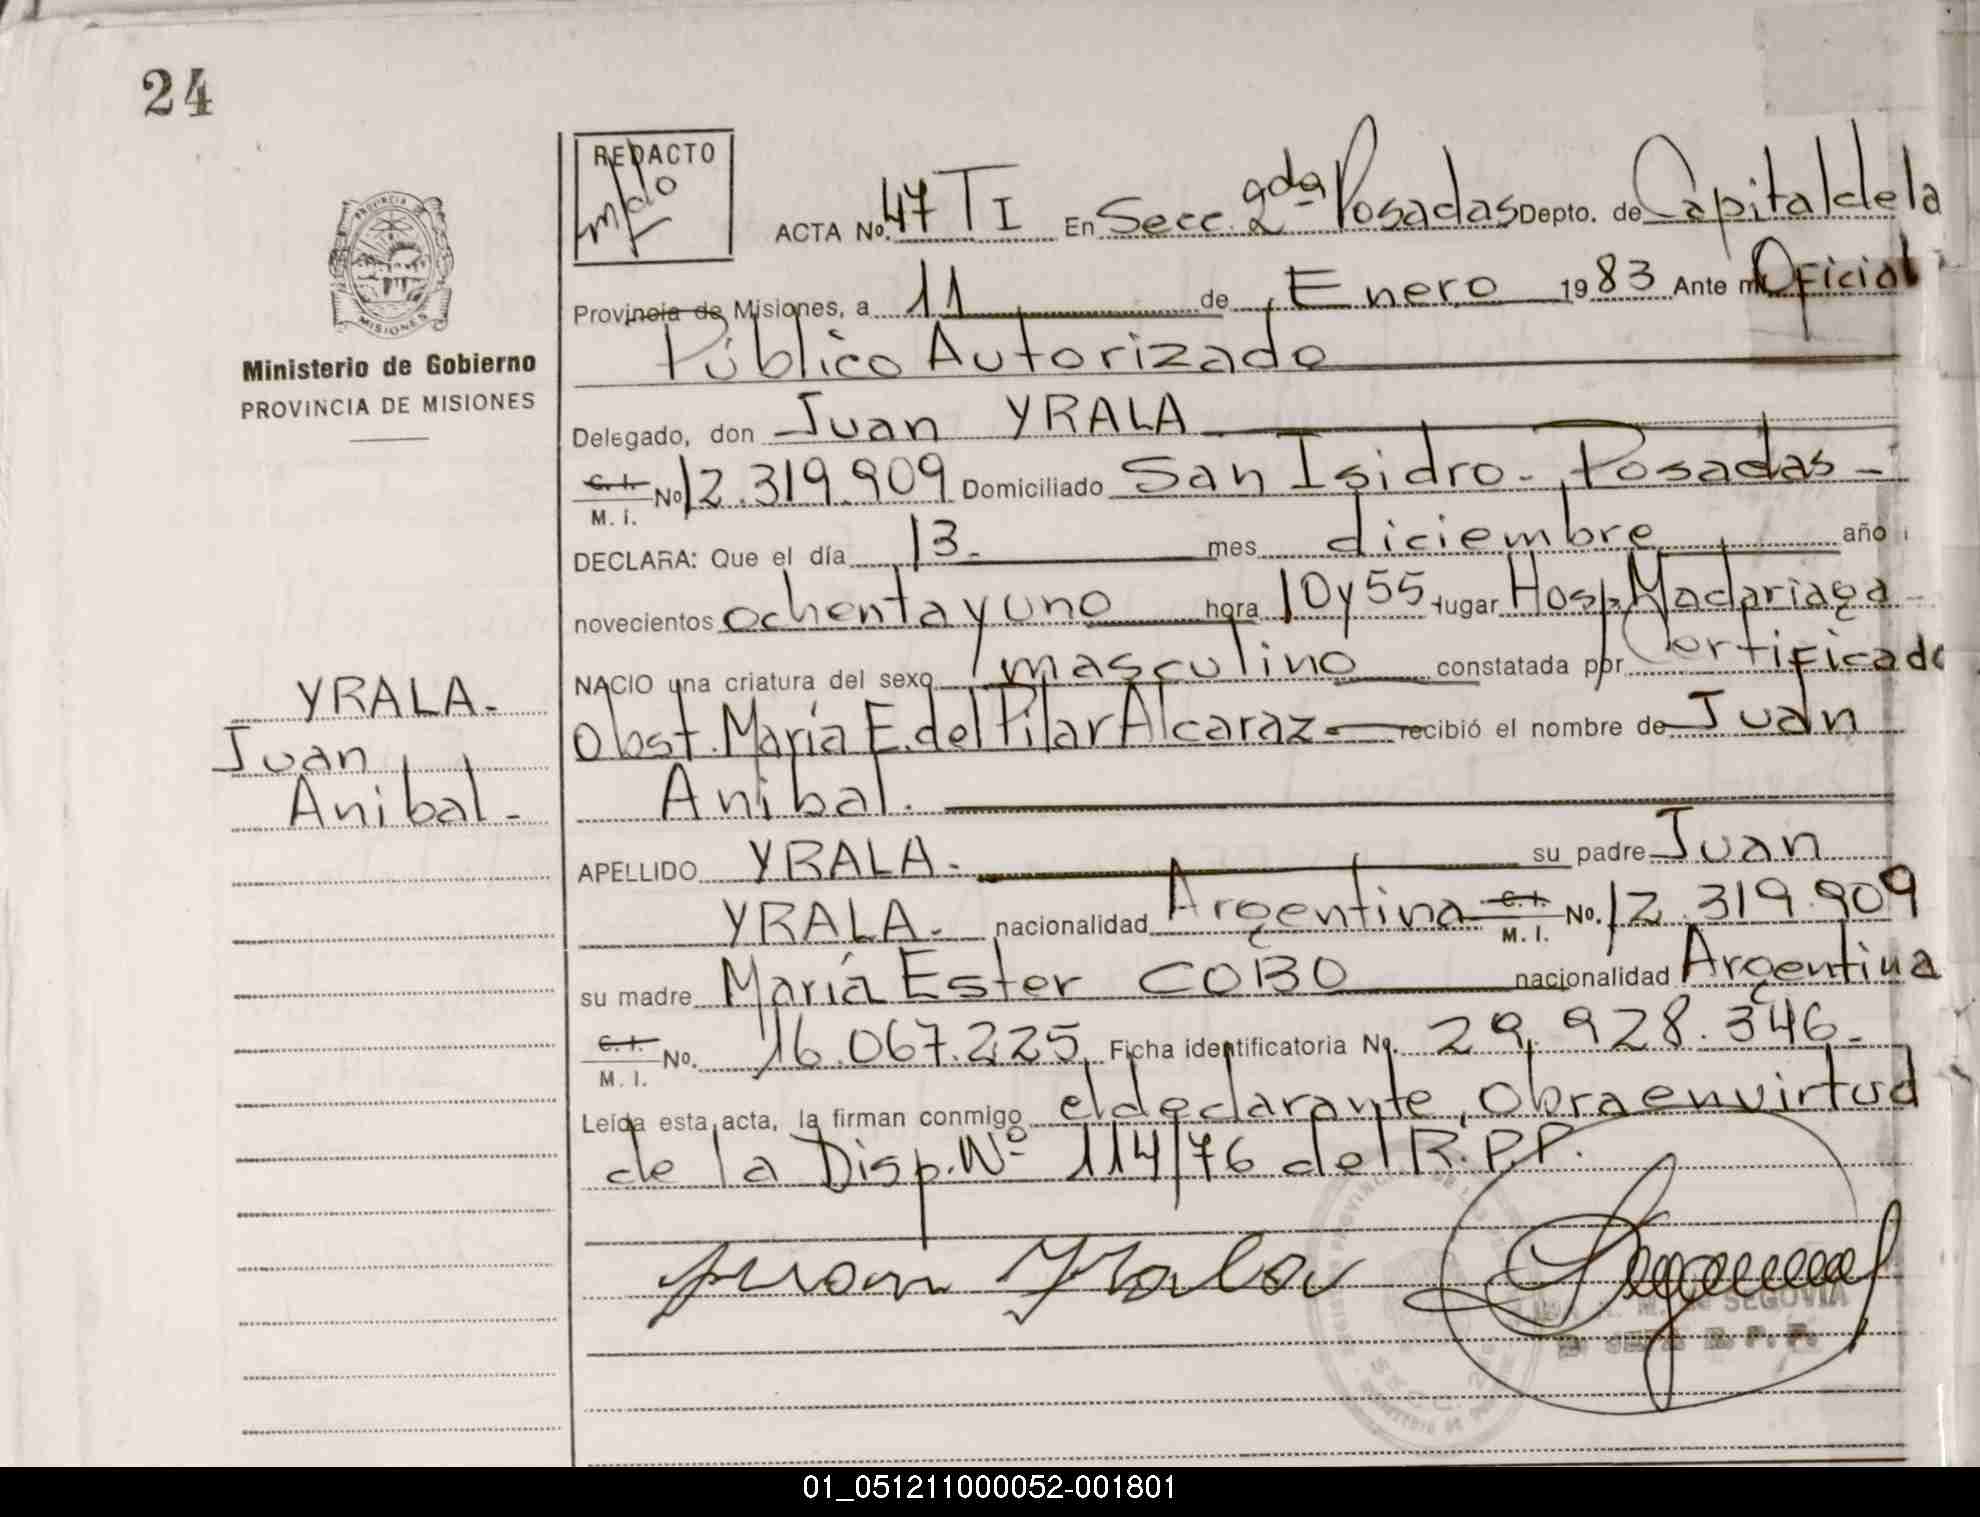 24
REDACTO
ACTA No. 47 TI En Secc. 2da Posadas Depto. de Capital de la
Provincia de Misiones, a 11 de Enero 1983 Ante mi Oficial
Público Autorizado
Ministerio de Gobierno
PROVINCIA DE MISIONES
Delegado, don Juan YRALA
C. I. No 12.319.909 Domiciliado San Isidro - Posadas -
M. I.
DECLARA: Que el día 13. mes diciembre año
novecientos ochenta y uno hora 10 y 55 lugar Hosp. Madariaga -
NACIO una criatura del sexo masculino constatada por Certificado
Obst. María E. del Pilar Alcaraz - recibió el nombre de Juan
Anibal.
YRALA -
Juan
Anibal -
APELLIDO YRALA - su padre Juan
YRALA - nacionalidad Argentina C. I. No. 12.319.909
M. I.
su madre María Ester COBO nacionalidad Argentina
C. I. No. 16.067.225 Ficha identificatoria No. 29.928.346 -
M. I.
Leída esta acta, la firman conmigo el declarante, Obra en virtud
de la Disp. Nº 114/76 del R.P.P.
Juan Yrala
SEGOVIA
R. P. P.
01_051211000052-001801